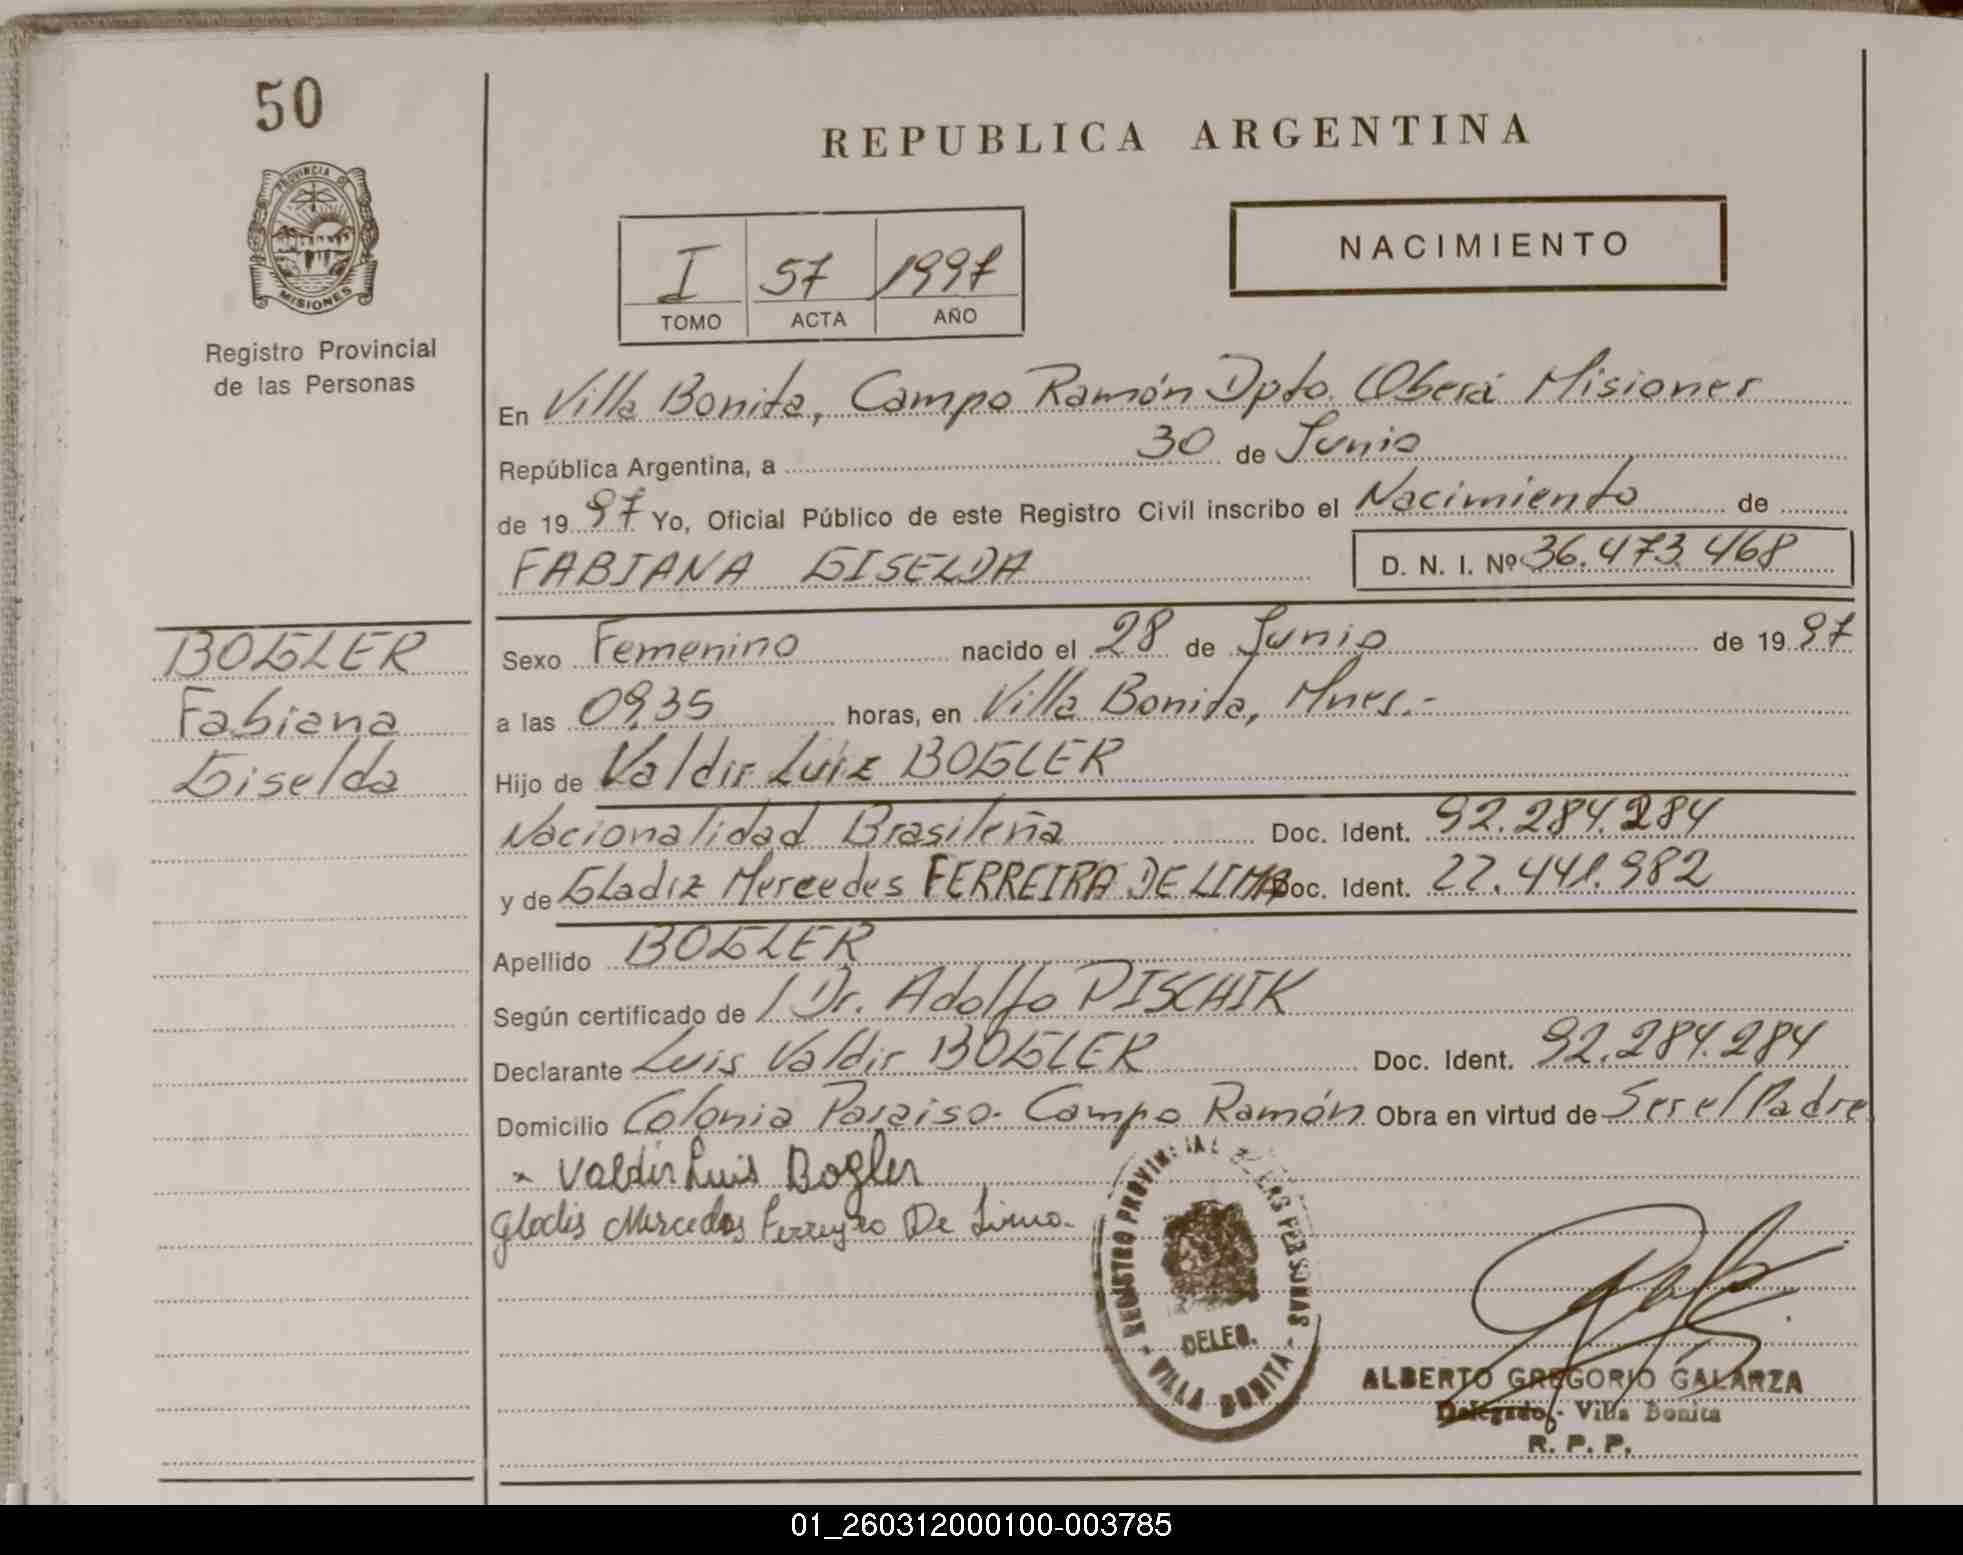 50
PROVINCIA DE
MISIONES
Registro Provincial
de las Personas
BOGLER
Fabiana
Giselda
REPUBLICA ARGENTINA
I 57 1997
TOMO ACTA AÑO
NACIMIENTO
En Villa Bonita, Campo Ramón Dpto. Oberá Misiones
República Argentina, a 30 de Junio
de 1997 Yo, Oficial Público de este Registro Civil inscribo el Nacimiento de
FABIANA GISELDA D. N. I. Nº 36.473.468
Sexo Femenino nacido el 28 de Junio de 1997
a las 09,35 horas, en Villa Bonita, Mnes.-
Hijo de Valdir Luiz BOGLER
Nacionalidad Brasileña Doc. Ident. 92.284.284
y de Gladiz Mercedes FERREIRA DE LIMA Doc. Ident. 22.441.982
Apellido BOGLER
Según certificado de Dr. Adolfo PISCHIK
Declarante Luis Valdir BOGLER Doc. Ident. 92.284.284
Domicilio Colonia Paraiso. Campo Ramón Obra en virtud de Ser el Padre
Valdir Luis Bogler
Gladis Mercedes Ferreyro De Lima.
REGISTRO PROVINCIAL DE LAS PERSONAS
DELEG.
VILLA BONITA
ALBERTO GREGORIO GALARZA
Delegado - Villa Bonita
R. P. P.
01_260312000100-003785